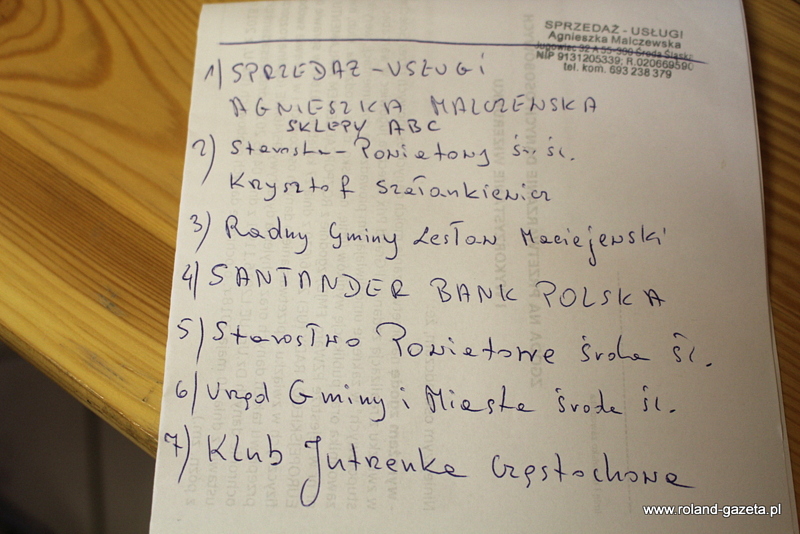 SPRZEDAŻ - USŁUGI
Agnieszka Malczewska
Jugowiec 32 A 55-300 Środa Śląska
NIP 9131205339; R.020669590
tel. kom. 693 238 379
1) SPRZEDAŻ - USŁUGI
AGNIESZKA MALCZEWSKA
SKLEPY ABC
2) Starosta - Powiatowy Śr. śl.
Krzysztof Szałankiewicz
3) Radny Gminy Lesław Maciejewski
4) SANTANDER BANK POLSKA
5) Starostwo Powiatowe Środa Śl.
6) Urząd Gminy i Miasta Środa Śl.
7) Klub Jutrzenka Częstochowa
www.roland-gazeta.pl